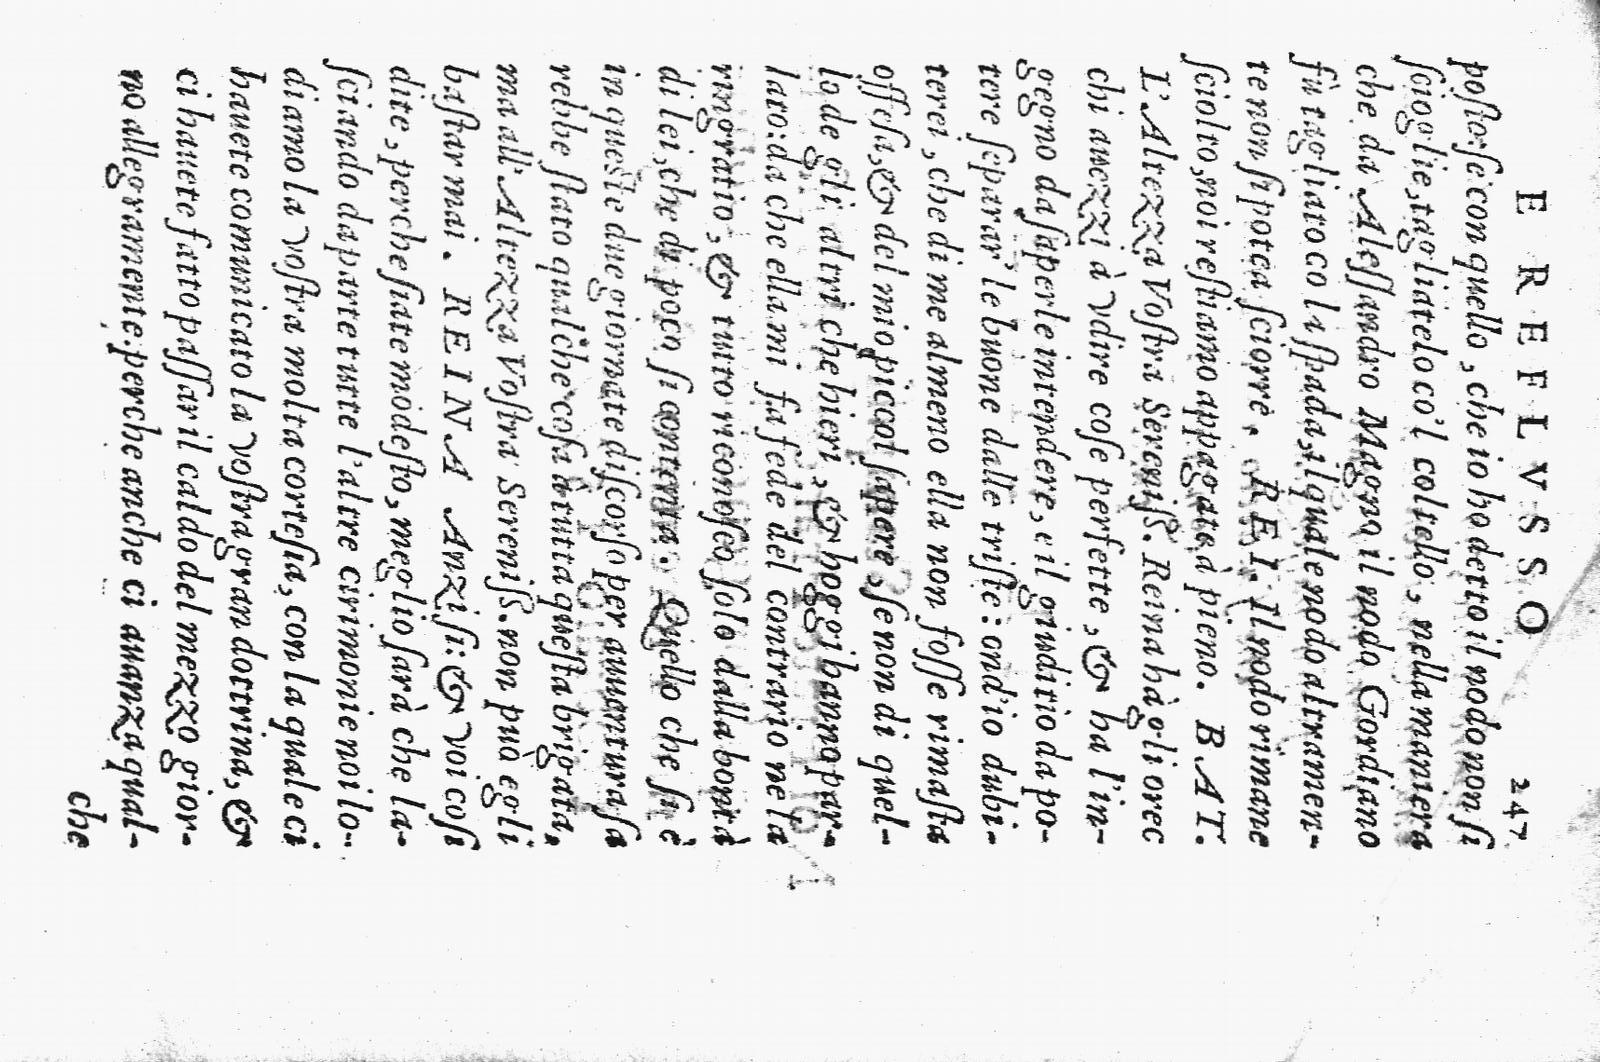 E REFLVSSO 247
poſto: ſe con quello, che io ho detto il nodo non ſi
ſcioglie, tagliatelo co'l coltello, nella maniera
che da Aleſſandro Magno il nodo Gordiano
fù tagliato co la ſpada, il quale nodo altramen-
te non ſi potea ſciorre. REI. Il nodo rimane
ſciolto, noi reſtiamo appagate à pieno. BAT.
L'Altezza Voſtra Sereniſſ. Reina hà gli orec
chi auezzi à vdire coſe perfette, & ha l'in-
gegno da ſaperle intendere, e il giuditio da po-
tere ſeparar' le buone dalle triſte: ond'io dubi-
terei, che di me almeno ella non foſſe rimaſta
offeſa, & del mio piccol ſapere, ſe non di quel-
lo de gli altri che hieri, & hoggi hanno par-
lato: da che ella mi fa fede del contrario ne la
ringratio, & tutto riconoſco ſolo dalla bontà
di lei, che di poco ſi contenta. Quello che ſi è
in queſte due giornate diſcorſo per auuantura ſa
rebbe ſtato qualche coſa à tutta queſta brigata,
ma all'Altezza Voſtra Sereniſſ. non può egli
baſtar mai. REINA Anzi ſi: & voi coſi
dite, perche ſiate modeſto, meglio ſarà che la-
ſciando da parte tutte l'altre cirimonie noi lo-
diamo la voſtra molta corteſia, con la quale ci
hauete communicato la voſtra gran dottrina, &
ci hauete fatto paſſar il caldo del mezzo gior-
no allegramente. perche anche ci auanza qual-
che